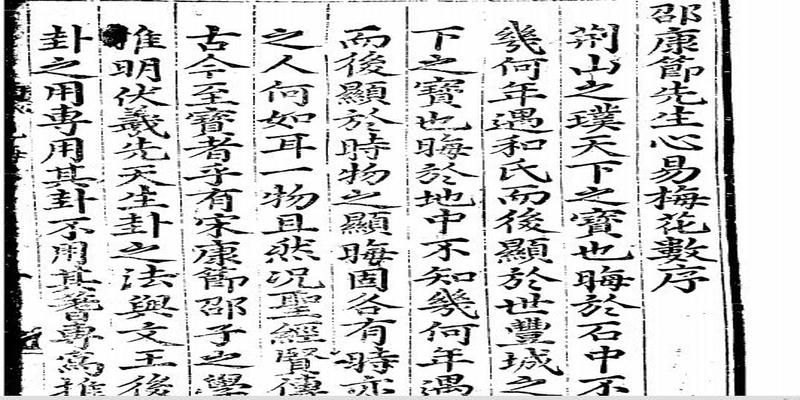 邵康節先生心易梅花數序
荆山之璞天下之寳也晦於石中不
幾何年遇和氏而後顯於世豐城之
下之寳也晦於地中不知幾何年遇
而後顯於時物之顯晦固各有時亦
之人何如耳一物且然况聖經賢傳
古今至寳者乎有宋康節邵子之學
推明伏羲先天生卦之法與文王後
卦之用専用其卦不用其蓍専爲推